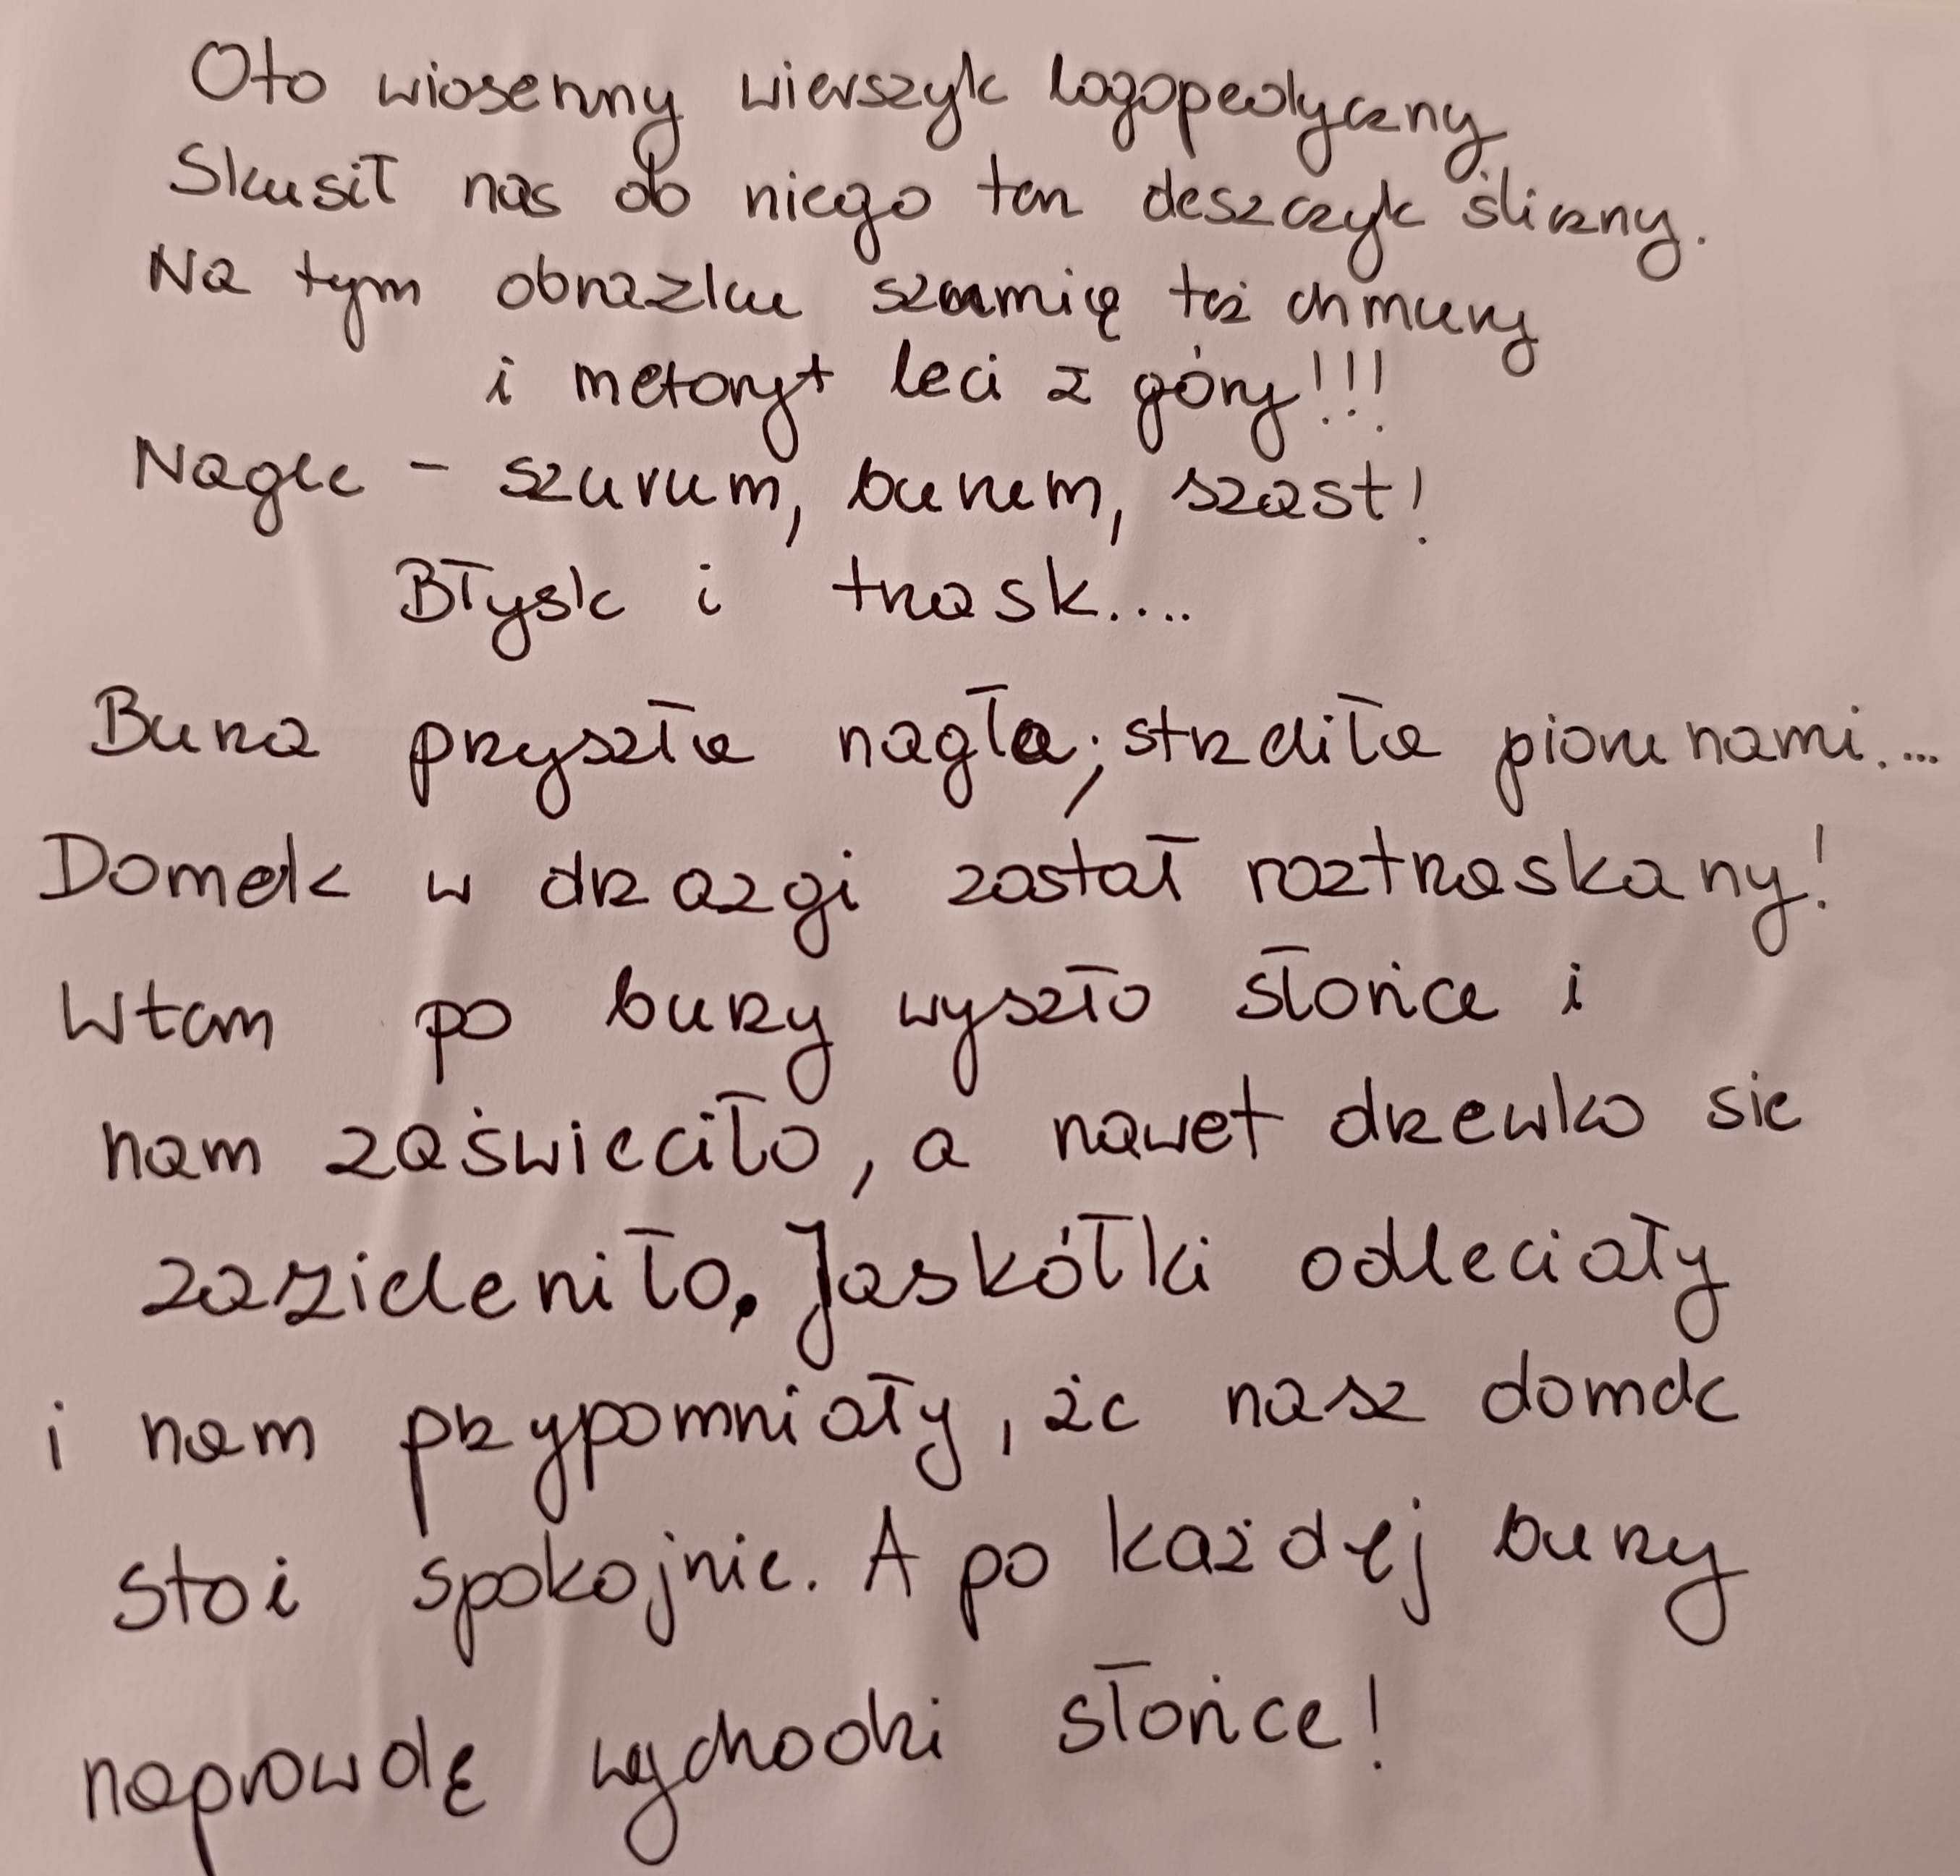 Oto wiosenny wierszyk logopedyczny
Skusił nas do niego ten deszczyk śliczny.
Na tym obrazku szumią też chmury
i metoryt leci z góry!!!
Nagle - szurum, burum, szast!
Błysk i trzask....
Burza przyszła nagła; strzeliła piorunami....
Domek w drzazgi został roztrzaskany!
Wtem po burzy wyszło słońce i
nam zaświeciło, a nawet drzewko się
zazieleniło. Jaskółki odleciały
i nam przypomniały, że nasz domek
stoi spokojnie. A po każdej burzy
naprawdę wychodzi słońce!